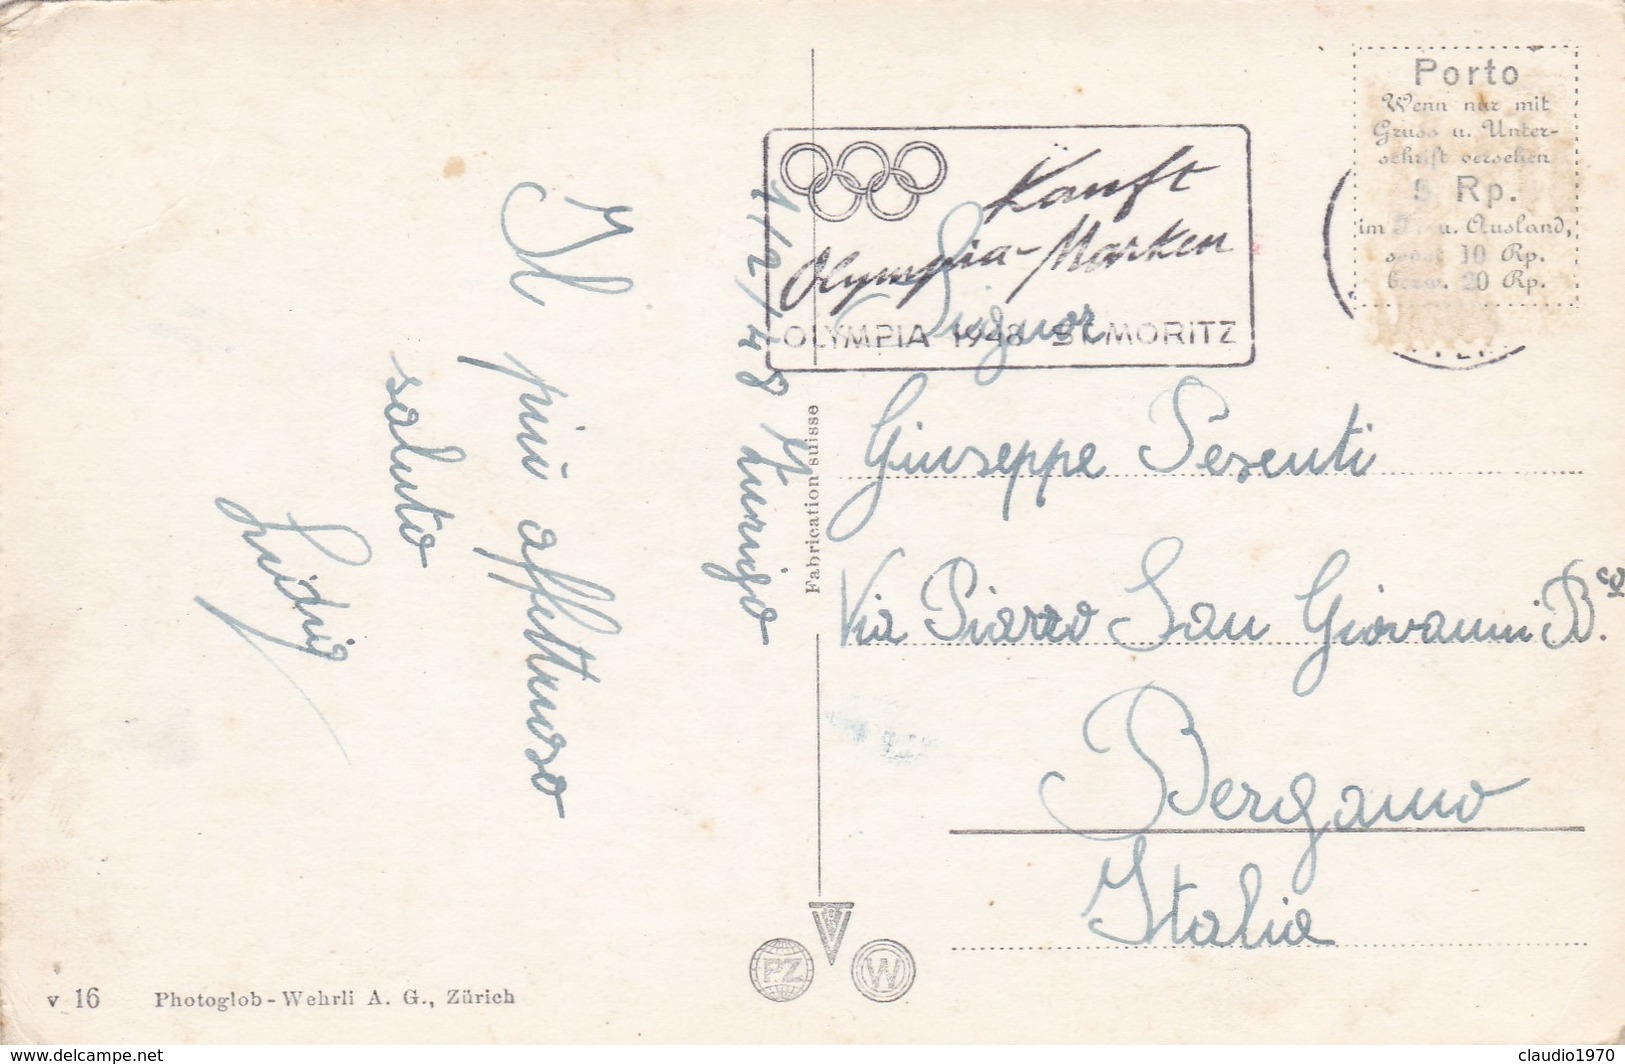 1/2/48 Zurigo
Il più affettuoso
saluto
Luidnig
Fabrication suisse
Kauft
Olympia-Marken
OLYMPIA 1948 ST. MORITZ
Porto
Wenn nur mit
Gruss u. Unter-
schrift versehen
5 Rp.
im In- u. Ausland,
sonst 10 Rp.
bezw. 20 Rp.
Signor
Giuseppe Pesenti
Via Piazzo San Giovanni B.co
Bergamo
Italia
PZ
W
v 16 Photoglob-Wehrli A. G., Zürich
delcampe.net
claudio1970